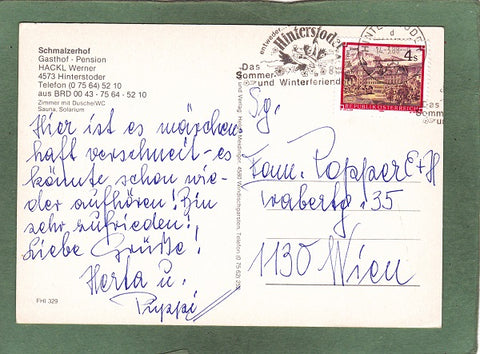 Schmalzerhof
Gasthof - Pension
HACKL Werner
4573 Hinterstoder
Telefon (0 75 64) 52 10
aus BRD 00 43 - 75 64 - 52 10
Zimmer mit Dusche/WC
Sauna, Solarium
Hier ist es märchen-
haft verschneit - es
könnte schon wie-
der aufhören! Bin
sehr zufrieden!
Liebe Grüße!
Herta u.
Puppi
FHI 329
entweder
Hinterstoder
Das
Sommer
und Winterferiendorf
HINTERSTODER
4 S
REPUBLIK ÖSTERREICH
Das
Somm
und
Sg.
Fam. Popper E + H
35
1130 Wien